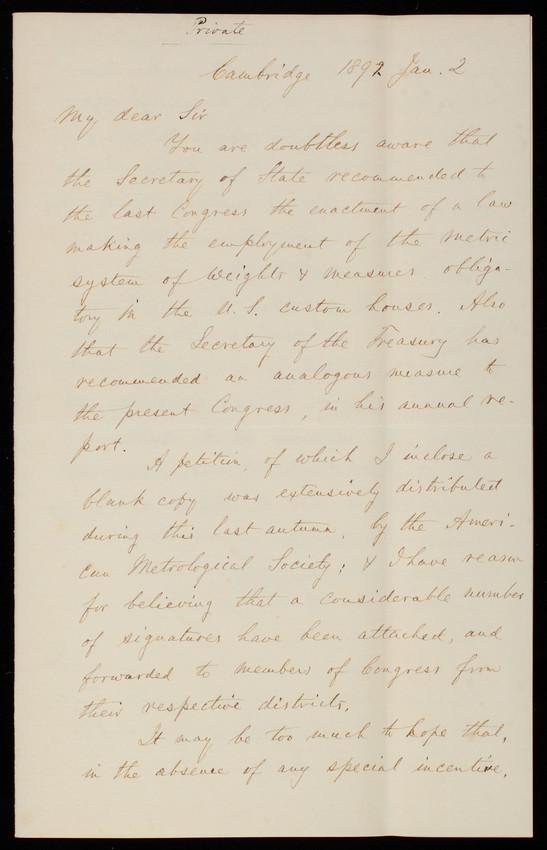 Private
Cambridge 1892 Jan. 2
My dear Sir
You are doubtless aware that
the Secretary of State recommended to
the last Congress the enactment of a law
making the employment of the metric
system of weights & measures obliga-
tory in the U.S. custom houses. Also
that the Secretary of the Treasury has
recommended an analogous measure to
the present Congress, in his annual re-
port.
A petition, of which I inclose a
blank copy was extensively distributed
during this last autumn, by the Ameri-
can Metrological Society; & I have reason
for believing that a considerable number
of signatures have been attached, and
forwarded to members of Congress from
their respective districts.
It may be too much to hope that,
in the absence of any special incentive,